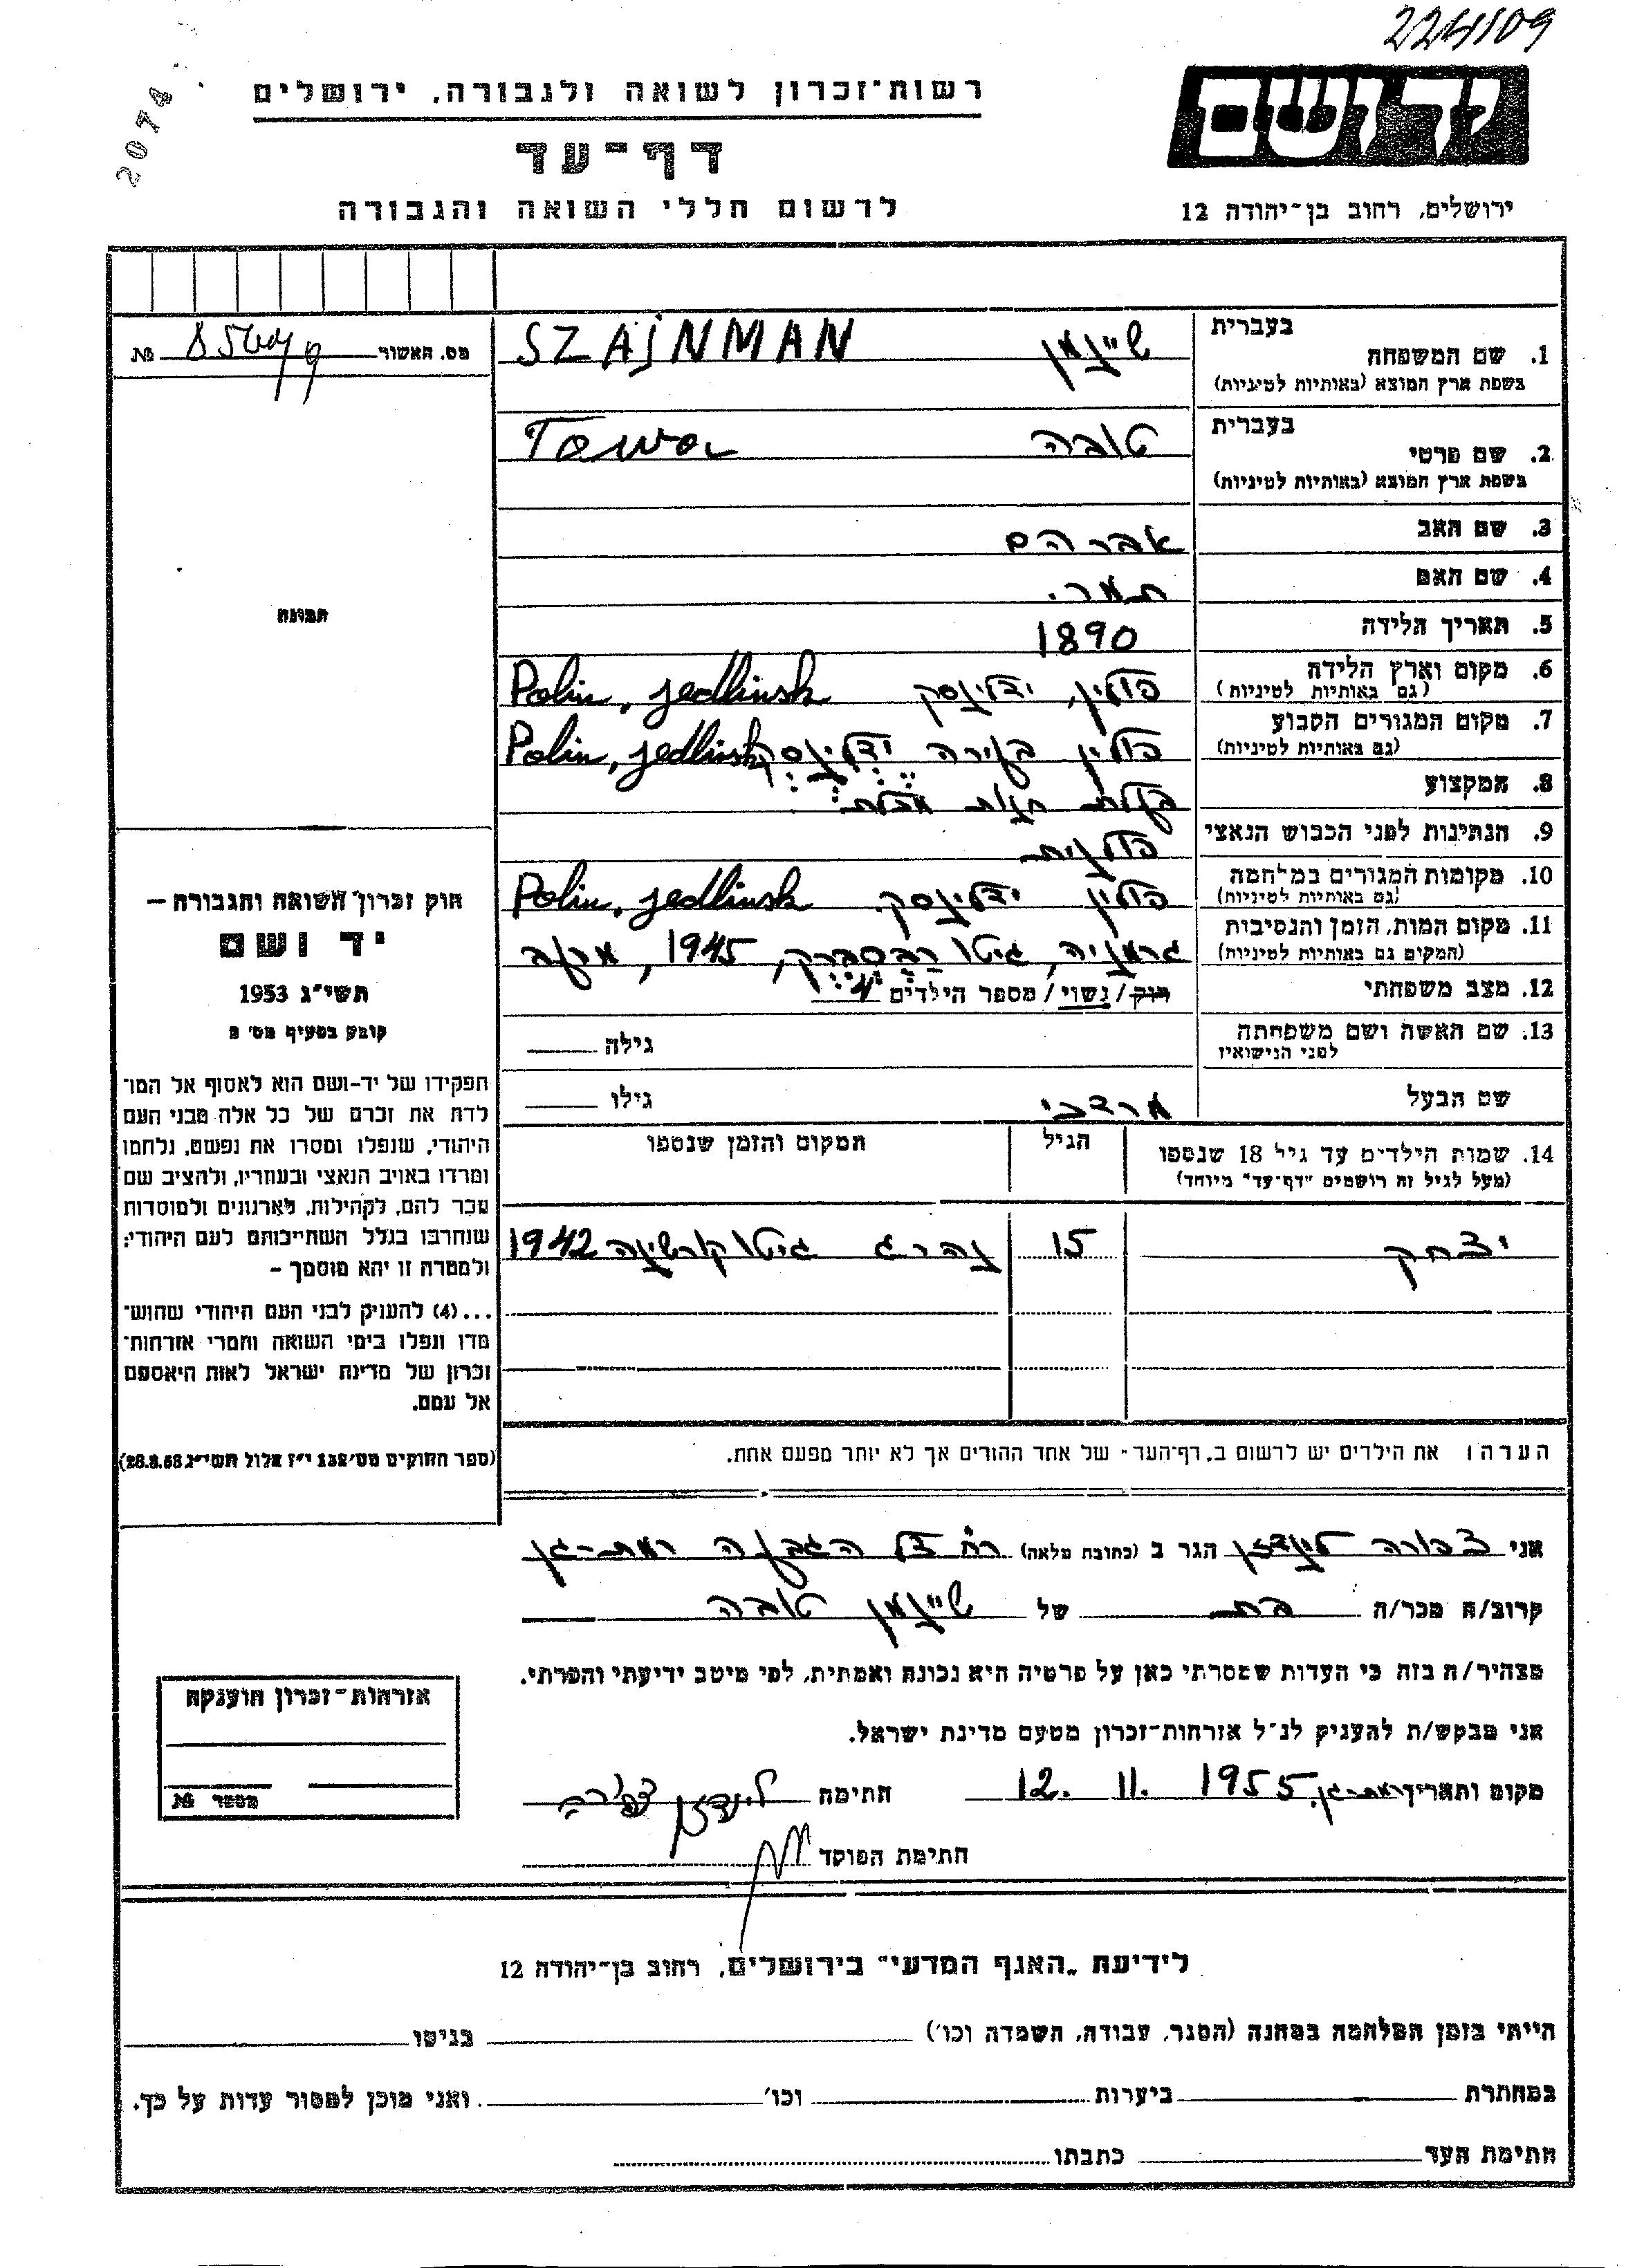 224109
2074
רשות־זכרון לשואה ולגבורה, ירושלים
דף־עד
לרשום חללי השואה והגבורה
יד ושם
ירושלים, רחוב בן־יהודה 12
מס. האשור № 
בעברית
1. שם המשפחה שיינמן SZAJNMAN
בשפת ארץ המוצא (באותיות לטיניות)
בעברית
2. שם פרטי טובה Towa
בשפת ארץ המוצא (באותיות לטיניות)
3. שם האב אברהם
4. שם האם תמר.
5. תאריך הלידה 1890
6. מקום וארץ הלידה פולין, ידלינסק Polin, jedlinsk
(גם באותיות לטיניות)
7. מקום המגורים הקבוע פולין בעירה ידלינסק Polin, jedlinsk
(גם באותיות לטיניות)
8. המקצוע בעלת חנות
9. הנתינות לפני הכבוש הנאצי פולנית
10. מקומות המגורים במלחמה פולין ידלינסק Polin, jedlinsk
(גם באותיות לטיניות)
11. מקום המות, הזמן והנסיבות גרמניה, גיטו 1945,
(המקום גם באותיות לטיניות)
12. מצב משפחתי רווק/נשוי/ מספר הילדים 4
13. שם האשה ושם משפחתה גילה
לפני הנישואין
שם הבעל מרדכי גילו
14. שמות הילדים עד גיל 18 שנספו הגיל המקום והזמן שנספו
(מעל לגיל זה רושמים "דף־עד" מיוחד)
יצחק 15 נהרג גיטו 1942
הערה: את הילדים יש לרשום ב„דף־העד" של אחד ההורים אך לא יותר מפעם אחת.
תמונה
חוק זכרון השואה והגבורה —
יד ושם
תשי"ג 1953
קובע בסעיף מס' 2
תפקידו של יד-ושם הוא לאסוף אל המו־
לדת את זכרם של כל אלה מבני העם
היהודי, שנפלו ומסרו את נפשם, נלחמו
ומרדו באויב הנאצי ובעוזריו, ולהציב שם
וזכר להם, לקהילות, לארגונים ולמוסדות
שנחרבו בגלל השתייכותם לעם היהודי;
ולמטרה זו יהא מוסמך —
...(4) להעניק לבני העם היהודי שהוש־
מדו ונפלו בימי השואה והמרי אזרחות־
זכרון של מדינת ישראל לאות היאספם
אל עמם.
(ספר החוקים מס' 132 י"ז אלול תשי"ג 28.8.53)
אני צפורה לינדזן הגר ב (כתובת מלאה) רח' תל הגבורה רמת-גן
קרוב/ה מכר/ה בת של שיינמן טובה
מצהיר/ה בזה כי העדות שמסרתי כאן על פרטיה היא נכונה ואמתית, לפי מיטב ידיעתי והכרתי.
אני מבקש/ת להעניק לנ"ל אזרחות־זכרון מטעם מדינת ישראל.
מקום ותאריך רמת-גן, 12. 11. 1955 חתימה לינדזן צפורה
חתימת הפוקד
אזרחות־זכרון הוענקה
מספר №
לידיעת „האגף המדעי" בירושלים, רחוב בן־יהודה 12
הייתי בזמן המלחמה במחנה (הסגר, עבודה, השמדה וכו') בגיטו
במחתרת ביערות וכו' ואני מוכן למסור עדות על כך.
חתימת העד כתבתו